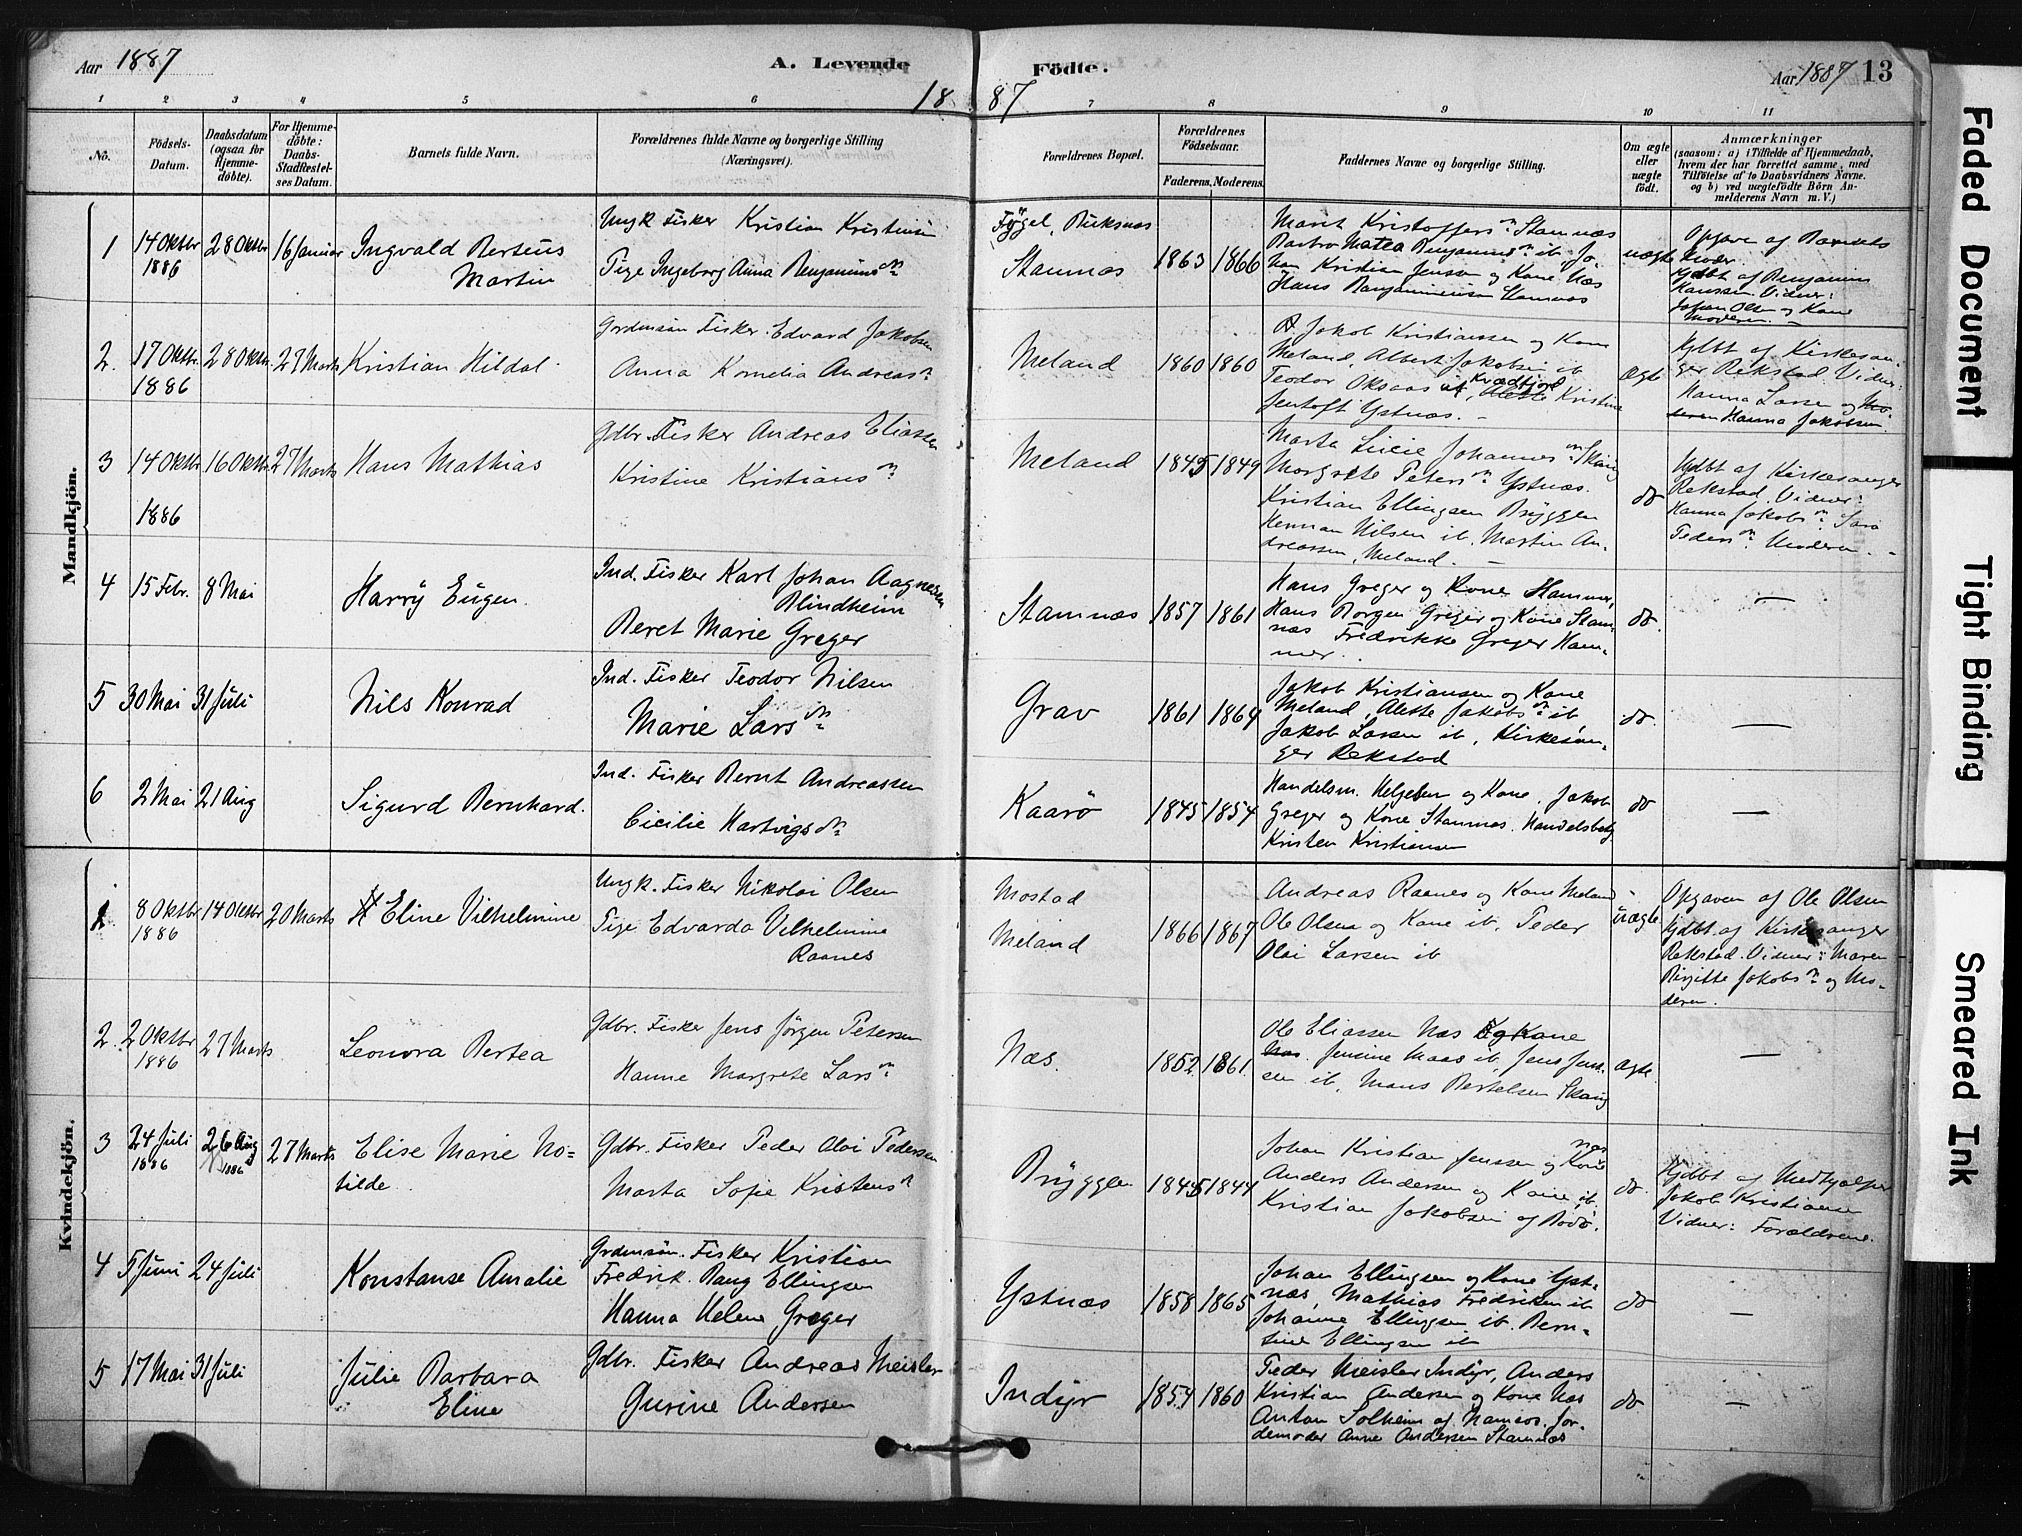 Aar 1887
A. Levende
Födte.
Aar 1887
13
18 87
1 2 3 4 5 6 7 8 9 10 11
No.
Födsels-
Datum.
Daabsdatum
(ogsaa for
Hjemme-
døbte).
For Hjemme-
döbte:
Daabs-
Stadfæstel-
ses Datum.
Barnets fulde Navn.
Forældrenes fulde Navne og borgerlige Stilling
(Næringsvei).
Forældrenes Bopæl.
Forældrenes
Födselsaar.
Faderens. Moderens.
Faddernes Navne og borgerlige Stilling.
Om ægte
eller
uægte
födt.
Anmærkninger
(saasom: a) i Tilfælde af Hjemmedaab,
hvem der har forrettet samme, med
Tilföielse af to Daabsvidners Navne,
og b) ved uægtefödte Börn An-
melderens Navn m. V.)
Mandkjön.
1
14 Oktbr
1886
28 Oktbr
16 Januar
Ingvald Berteus
Martin
Ungk Fisker Kristian Kristiansen
Pige Ingeborg Anna Benjamins dn
Stamnæs
1863
1866
Marit Kristoffers dn Stamnæs
Barbro Matea Benjamins dn ib. Jo-
han Kristian Jensen og Kone Næs
Hans Benjaminsen Stamnæs
uægte
Opgave af Barnets
Moder.
Hjdbt af Benjamin
Hanssen. Vidner:
Johan Olsen og Kone
Moderen. –
2.
17 Oktbr.
1886
28 Oktbr.
27 Marts
Kristian Hildal
Grdmsön Fisker. Edvard Jakobsen
Anna Kornelia Andreas dn
Meland
1860
1860
Jakob Kristiansen og Kone
Meland, Albert Jakobsen ib
Teodor Oksaas Kvædfjord, Kristine
Jentoft Ystnæs. –
Ægte
Hjdbt af Kirkesan-
ger Rekstad. Vidner:
Hanna Larsen og Mo-
deren Hanna Jakobsen.
3
14 Oktbr.
1886
16 Oktbr.
27 Marts
Hans Mathias
Gdbr. Fisker Andreas Eliassen
Kristine Kristians dn
Meland
1845
1849
Marta Lucie Johannes dn Skaug
Margrete Peters dn Ystnæs.
Kristian Ellingsen Bryggen
Herman Nilsen ib. Martin An-
dreassen, Meland. –
do
Hjdbt af Kirkesanger
Rekstad. Vidner:
Hanna Jakobs dn Sara
Peders dn Moderen. –
4
15 Febr.
8 Mai
Harry Eugen.
Ind. Fisker Karl Johan Aagnesen
Blindheim
Beret Marie Greger
Stamnæs
1857
1861
Hans Greger og Kone Hammer,
Hans Borgen Greger og Kone Stam-
næs Fredrikke Greger Ham-
mer.
do.
—
5
30 Mai
31 Juli
Nils Konrad
Ind. Fisker Teodor Nilsen
Marie Lars dn
Grav
1861
1864
Jakob Kristiansen og Kone
Meland, Alette Jakobs dn ib
Jakob Larsen ib, Kirkesan-
ger Rekstad
do.
—
6
2 Mai
21 Aug
Sigurd Bernhard.
Ind. Fisker Bernt Andreassen
Cicilie Hartvigs dn
Kaarö
1845
1854
Handelsm. Helgesen og Kone, Jakob
Greger og Kone Stamnæs. Handelsbetj.
Kristen Kristiansen
do
—
Kvindekjön.
1
8 Oktbr
1886
14 Oktbr
20 Marts
Eline Vilhelmine
Ungk. Fisker Nikolai Olsen
Pige Edvarda Vilhelmine
Raanes
Mostad
Meland
1866
1867
Andreas Raanes og Kone Meland
Ole Olsen og Kone ib, Peder
Olai Larsen ib
uægte
Opgaven af Ole Olsen
Hjdbt. af Kirkesanger
Rekstad. Vidner: Maren
Birgitte Jakobs dn og Mo-
deren.
2.
2 Oktbr
1886
27 Marts
Leonora Bertea
Gdbr. Fisker Jens Jörgen Petersen
Hanne Margrete Lars dn
Næs.
1852
1861.
Ole Eliassen Næs og Kone
Jensine Maas ib, Jens Jens-
sen ib, Mans Bertelsen Skaug
ægte
—
3
24 Juli
1886
26 Aug
1886
27 Marts
Elise Marie Ma=
tilde
Gdbr. Fisker Peder Olai Pedersen
Marta Sofie Kristens dn
Bryggen
1845
1844
Johan Kristian Jenssen og Kone Næs
Anders Andersen og Kone ib.
Kristian Jakobsen af Bodö.
do.
Hjdbt af Medhjælper
Jakob Kristiansen
Vidner: Forældrene.
4
5 Juni
24 Juli
Konstanse Amalie
Grdmsön. Fisker Kristian
Fredrik Bang Ellingsen
Hanna Helene Greger
Ystnæs
1858
1865
Johan Ellingsen og Kone Yst-
næs, Mathias Fredriksen ib
Johanne Ellingsen ib. Bern-
tine Ellingsen ib
do
—
5
17 Mai
31 Juli
Julie Barbara
Eline
Gdbr. Fisker Andreas Meisler
Gurine Andersen
Indyr
1854
1860
Peder Meisler Indyr, Anders
Kristian Andersen og Kone Næs
Anton Solheim af Namsos. Jor-
demoder Anne Andersen Stamnæs
do
—
Faded Document
Tight Binding
Smeared Ink